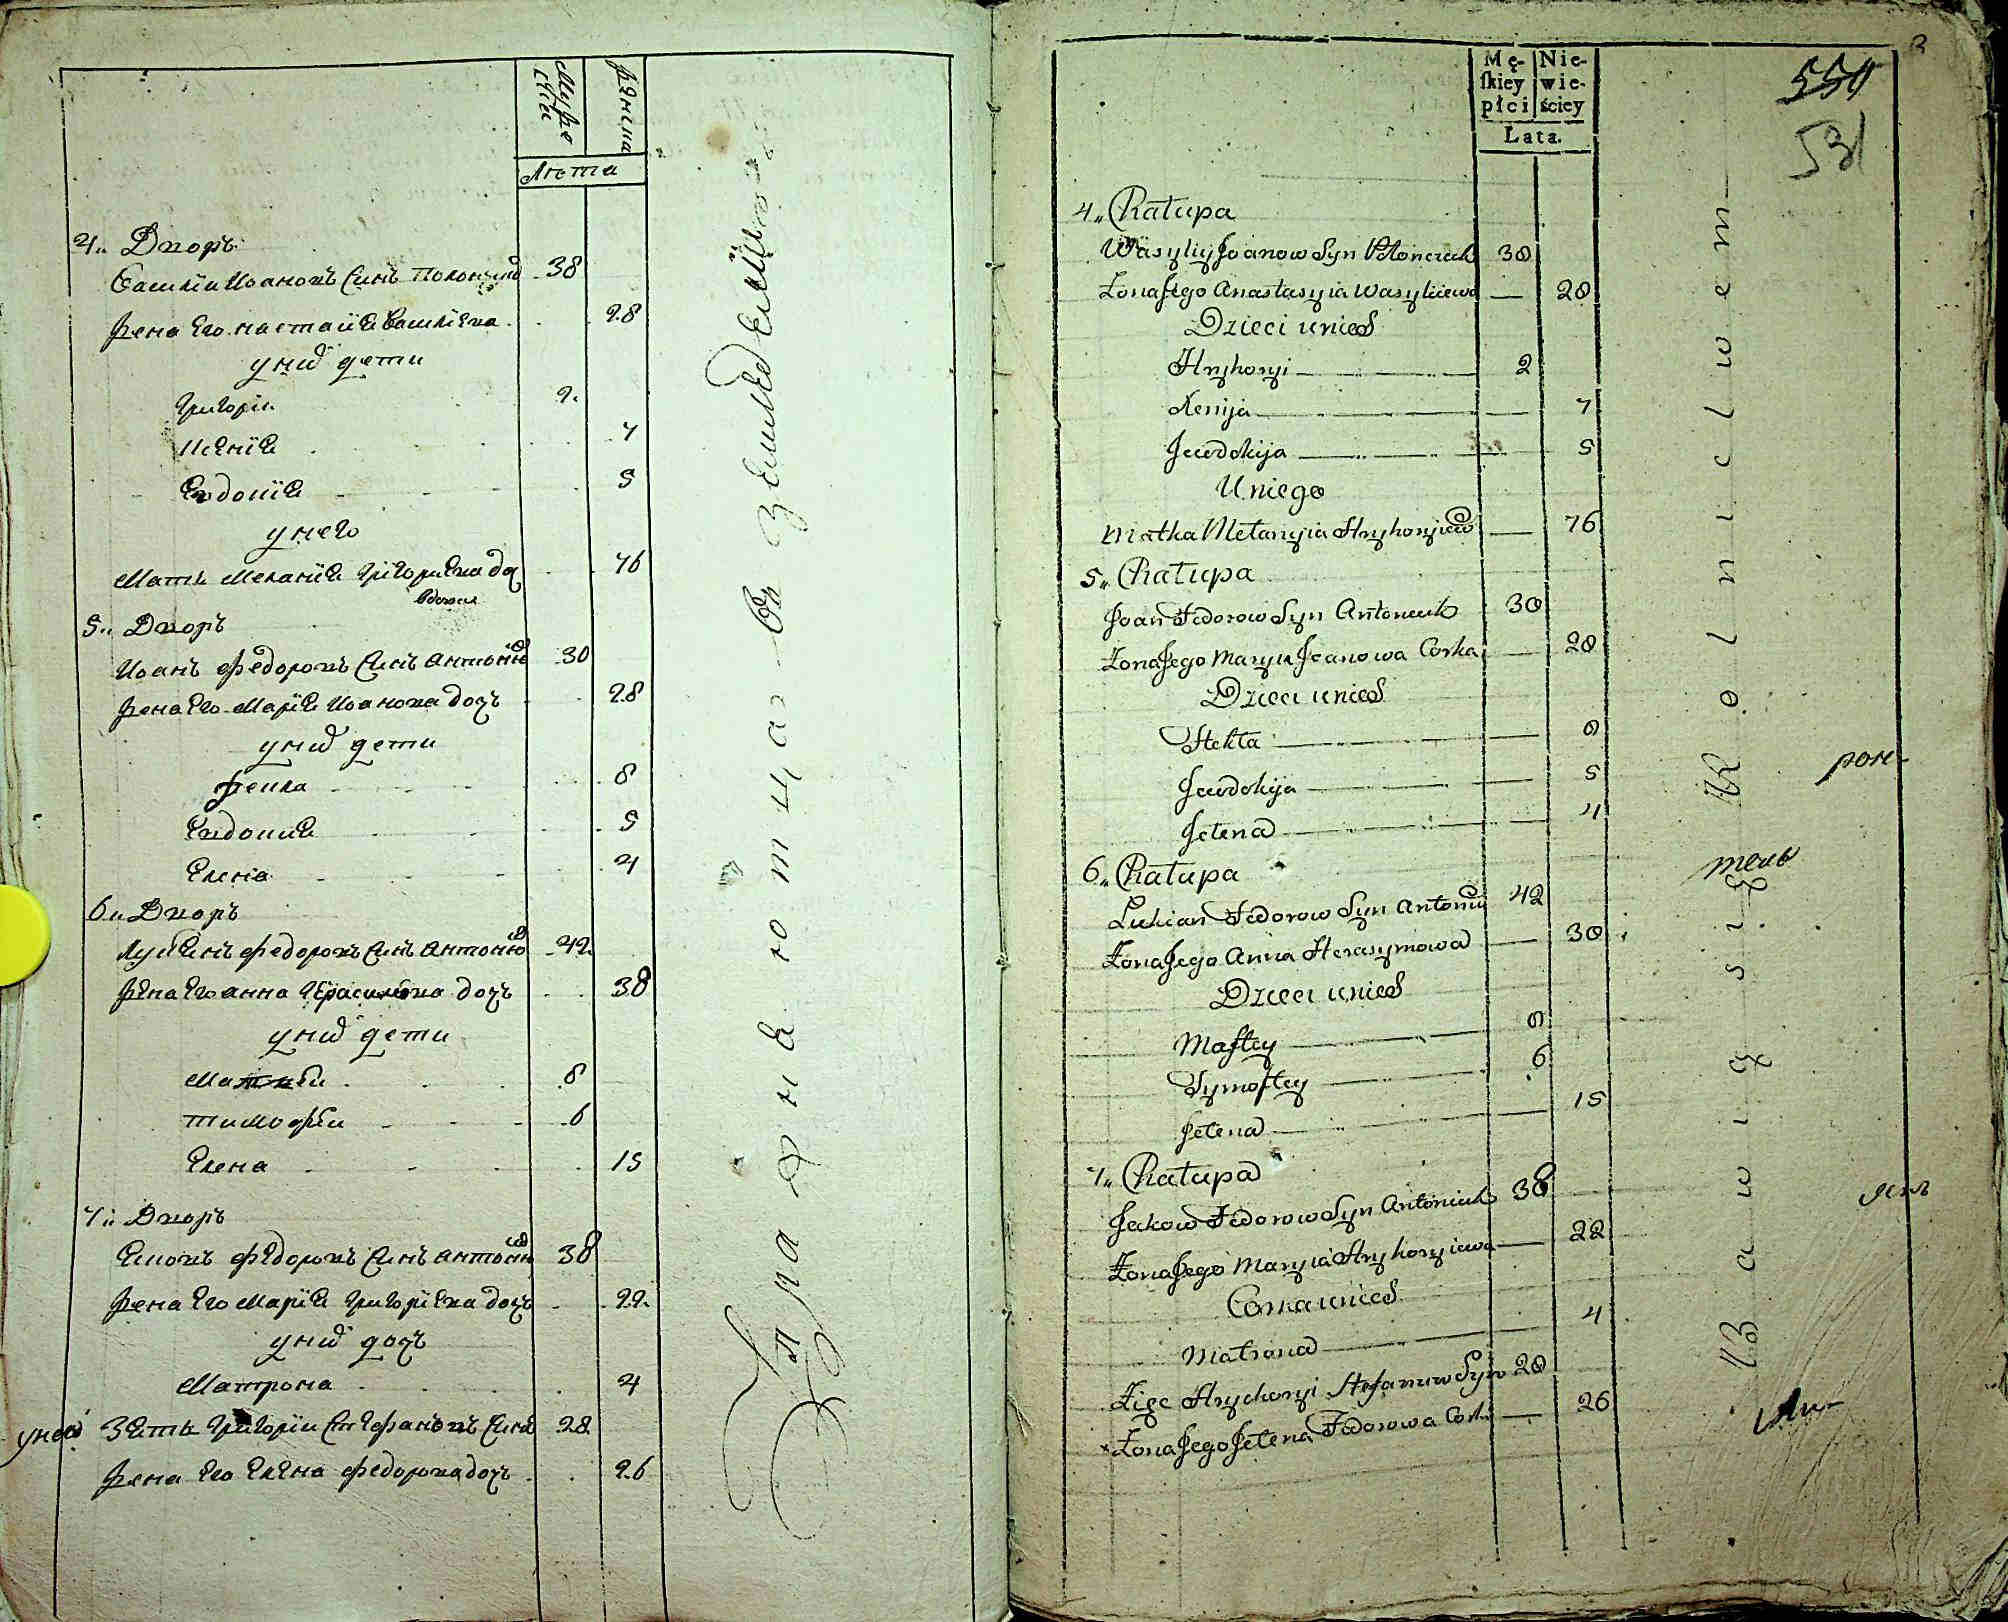 Мужескiи
Женска
Лѣта
4„ Дворъ
Василiи Иоановъ Синъ 38
Жена Его настасiя василiева 28
у них дети
Григорiи 2
Ксенiя 7
Евдокiя 5
у него
Мать Меланiя Григориева доч 76
вдовая
5„ Дворъ
Иоанъ Федоровъ Синъ Антонюк 30
Жена Его Марiя Иоанова дочъ 28
у них дети
Фекла 8
Евдокия 5
Елена 4
6„ Дворъ
Лукiянъ Федоровъ Синъ Антонюк 42
Жена Его анна Герасимова дочъ 38
у них дети
Матфеи 8
тимофеи 6
Елена 15
7„ Дворъ
Яковъ Федоровъ Синъ антонюк 38
Жена Его Марiя Григорiева дочъ 22
у них дочъ
Матрона 4
у него Зять Григорiи Стефановъ Синъ 28
Жена Его Елена Федорова дочъ 26
Упражняются в земледелiи
Mę-skiey płci
Nie-wie-ściey
Lata.
3
554
531
4„ Chałupa
Wasyliy Joanow Syn 38
Żona Jego Anastasyia Wasyliiewa — 28
Dzieci u nich
Hryhoryi — 2
Xenija — 7
Jewdokija — 5
U niego
Matka Mełanyia Hryhoryiewa — 76
5„ Chałupa
Joan Fedorow Syn Antoniuk 30
Żona Jego Marya Joanowa Corka — 28
Dzieci u nich
Thekla — 8
Jewdokija — 5
Jelena — 4
6„ Chałupa
Lukian Fedorow Syn Antoniuk 42
Żona Jego Anna Herasymowa — 38
Dzieci u nich
Maftey — 8
Tymoftey — 6
Jelena — 15
7„ Chałupa
Jakow Fedorow Syn Antoniuk 38
Żona Jego Maryia Hryhoryiewa — 22
Corka u nich
Matrona — 4
Zięc Hrychoryi Stefanow Syn 28
Żona Jego Jelena Fedorowa Corka — 26
Bawią się Rolnictwem